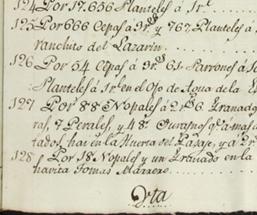 124 Por 17.656 Planteles á 1 r.ˢ
125 Por 666 Cepas á 3 r.ˢ y 767 Planteles á
ranchito del Lazarin.
126 Por 54 Cepas á 3 r.ˢ 61. Parrones á
Planteles á 1 r.ˢ en el Ojo de Agua de la
127 Por 88 Nopales á 2 r.ˢ 6 Granad
ras, 7 Perales, y 48 Durasnos q.ᵉ á mas
tados, hai en la Huerta del Pasaje, y á 2 r.
128 Por 18 Nopales y un Granado en la
havita Tomas Marrero
Vta